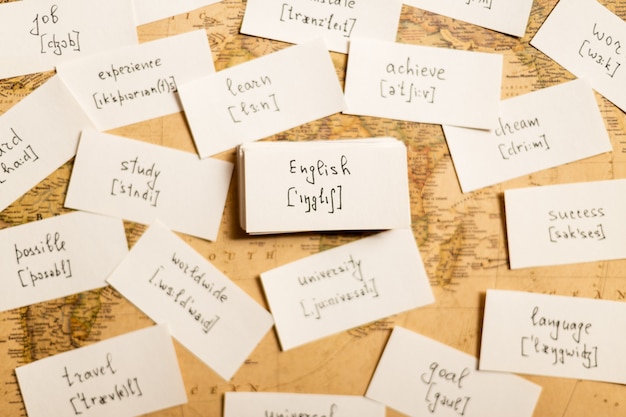 job
[dʒɔb]
[trænz'leɪt]
experience
[ɪk'spɪərɪən(t)
learn
[lɜ:n]
achieve
[ə'tʃi:v]
[wɜ:k]
dream
[dri:m]
study
['stʌdɪ]
English
['ɪŋglɪʃ]
success
[sək'ses]
possible
['pɔsəbl]
worldwide
[,wɜ:ld'waɪd]
university
[,ju:nɪvɜ:sətɪ]
language
['læŋgwɪdʒ]
travel
['træv(ə)l]
goal
[gəul]
universal